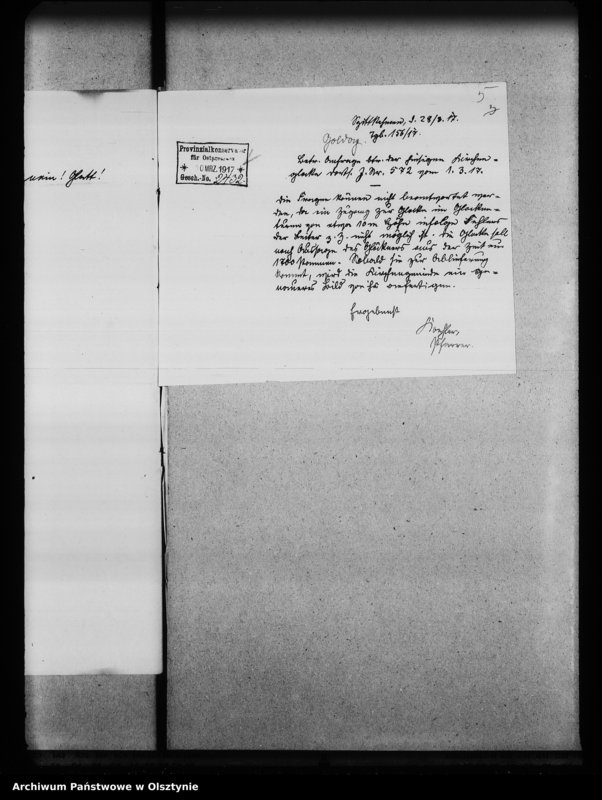 nein! Glatt!
5
Szittkehmen, d. 28/3. 17.
Tgb. 156/17.
Goldap.
Provinzialkonservator
für Ostpreussen
MRZ. 1917
Gesch.-No. 2432
Betr. Anfrage btr. der hiesigen Kirchen-
glocke dorts. J. Nr. 572 vom 1. 3. 17.
Die Fragen können nicht beantwortet wer-
den, da ein Zugang zur Glocke im Glocken-
turm von etwa 10 m Höhe infolge Fehlens
der Leiter z. Z. nicht möglich ist. Die Glocke soll
nach Aussage des Glöckners aus der Zeit um
1700 stammen. Sobald sie zur Ablieferung
kommt, wird die Kirchengemeinde ein ge-
naueres Bild von ihr anfertigen.
Ergebenst
Pfarrer.
Archiwum Państwowe w Olsztynie